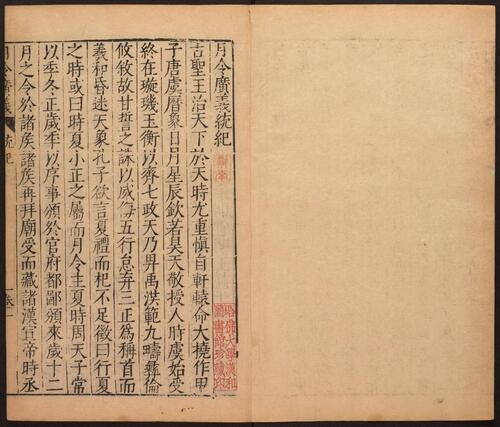 月令廣義統紀
古聖王治天下於天時尤重慎自軒轅命大撓作甲
子唐虞曆象日月星辰欽若昊天敬授人時虞始受
終在璇璣玉衡以齊七政天乃畀禹洪範九疇彝倫
攸敘故甘誓之誅以威侮五行怠弃三正為稱首而
羲和昏迷天象孔子欲言夏禮而杞不足徵曰行夏
之時或曰時夏小正之屬而月令主夏時周天子常
以季冬正歲年以序事頒於官府都鄙頒來歲十二
月之令於諸矦諸矦再拜廟受而藏諸漢宣帝時丞
月令廣義
統紀
一
哈佛大學漢和
圖書館珍藏印